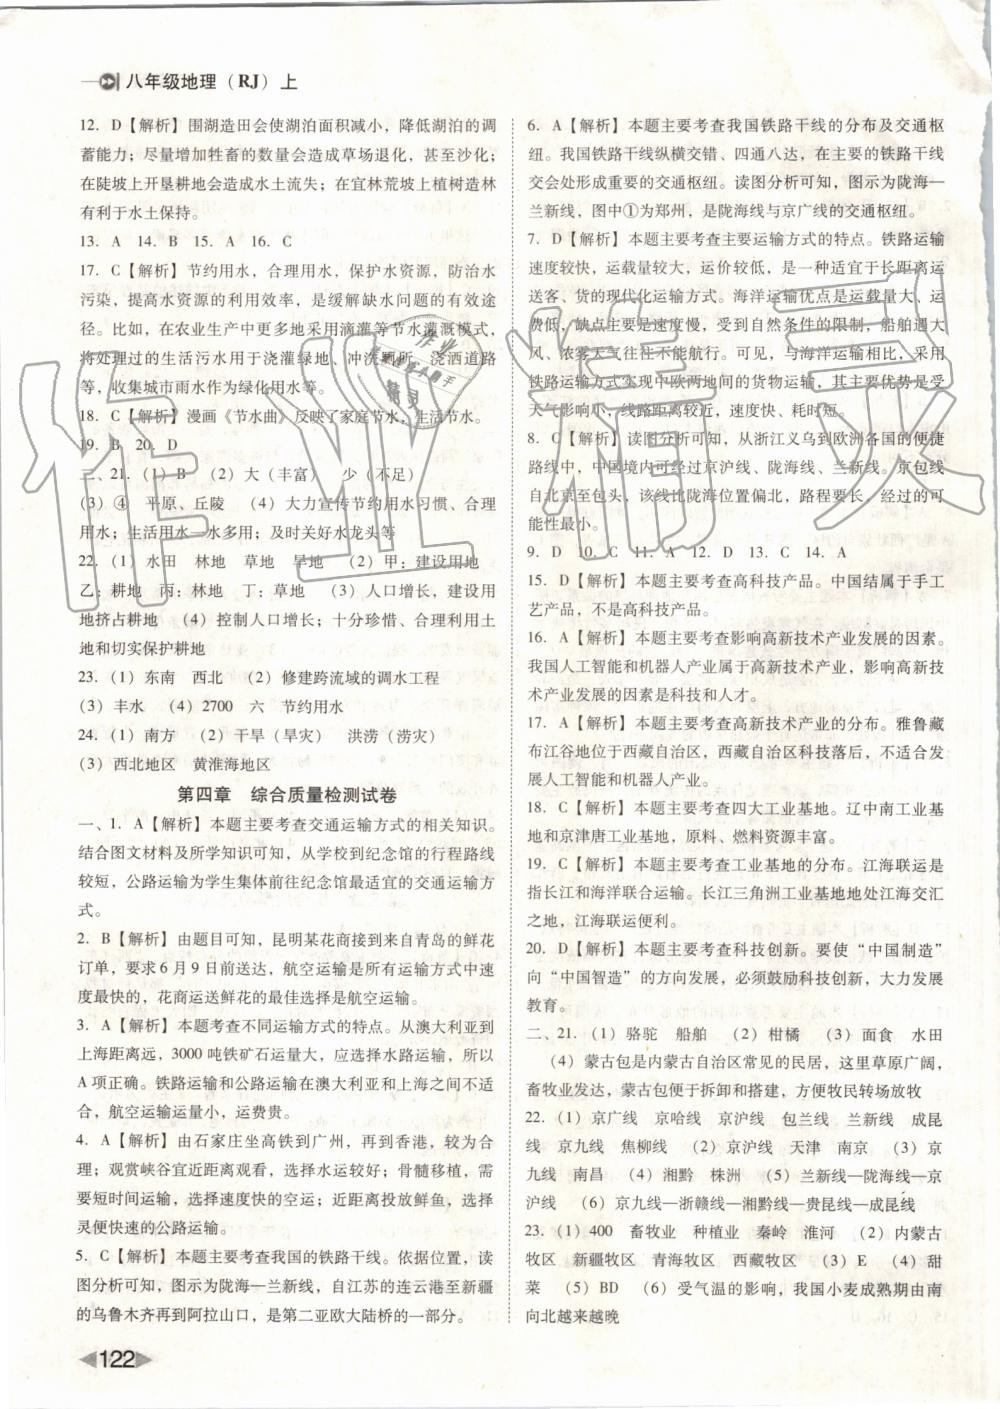 八年级地理（RJ）上
12. D【解析】围湖造田会使湖泊面积减小，降低湖泊的调
蓄能力；尽量增加牲畜的数量会造成草场退化，甚至沙化；
在陡坡上开垦耕地会造成水土流失；在宜林荒坡上植树造林
有利于水土保持。
13. A　14. B　15. A　16. C
17. C【解析】节约用水，合理用水，保护水资源，防治水
污染，提高水资源的利用效率，是缓解缺水问题的有效途
径。比如，在农业生产中更多地采用滴灌等节水灌溉模式，
将处理过的生活污水用于浇灌绿地、冲洗厕所、浇洒道路
等，收集城市雨水作为绿化用水等。
18. C【解析】漫画《节水曲》反映了家庭节水，生活节水。
19. B　20. D
二、21.（1）B　（2）大（丰富）　少（不足）
（3）④　平原、丘陵　（4）大力宣传节约用水习惯、合理
用水；生活用水一水多用；及时关好水龙头等
22.（1）水田　林地　草地　旱地　（2）甲：建设用地
乙：耕地　丙：林地　丁：草地　（3）人口增长，建设用
地挤占耕地　（4）控制人口增长；十分珍惜、合理利用土
地和切实保护耕地
23.（1）东南　西北　（2）修建跨流域的调水工程
（3）丰水　（4）2700　六　节约用水
24.（1）南方　（2）干旱（旱灾）　洪涝（涝灾）
（3）西北地区　黄淮海地区
第四章　综合质量检测试卷
一、1. A【解析】本题主要考查交通运输方式的相关知识。
结合图文材料及所学知识可知，从学校到纪念馆的行程路线
较短，公路运输为学生集体前往纪念馆最适宜的交通运输方
式。
2. B【解析】由题目可知，昆明某花商接到来自青岛的鲜花
订单，要求 6 月 9 日前送达，航空运输是所有运输方式中速
度最快的，花商运送鲜花的最佳选择是航空运输。
3. A【解析】本题考查不同运输方式的特点。从澳大利亚到
上海距离远，3000 吨铁矿石运量大，应选择水路运输，所以
A 项正确。铁路运输和公路运输在澳大利亚和上海之间不适
合，航空运输运量小，运费贵。
4. A【解析】由石家庄坐高铁到广州，再到香港，较为合
理；观赏峡谷宜近距离观看，选择水运较好；骨髓移植，需
要短时间运输，选择速度快的空运；近距离投放鲜鱼，选择
灵便快速的公路运输。
5. C【解析】本题主要考查我国的铁路干线。依据位置，读
图分析可知，图示为陇海—兰新线，自江苏的连云港至新疆
的乌鲁木齐再到阿拉山口，是第二亚欧大陆桥的一部分。
6. A【解析】本题主要考查我国铁路干线的分布及交通枢
纽。我国铁路干线纵横交错、四通八达，在主要的铁路干线
交会处形成重要的交通枢纽。读图分析可知，图示为陇海—
兰新线，图中①为郑州，是陇海线与京广线的交通枢纽。
7. D【解析】本题主要考查主要运输方式的特点。铁路运输
速度较快，运载量较大，运价较低，是一种适宜于长距离运
送客、货的现代化运输方式。海洋运输优点是运载量大、运
费低，缺点主要是速度慢，受到自然条件的限制，船舶遇大
风、浓雾天气往往不能航行。可见，与海洋运输相比，采用
铁路运输方式实现中欧两地间的货物运输，其主要优势是受
天气影响小，线路距离较近，速度快、耗时短。
8. C【解析】读图分析可知，从浙江义乌到欧洲各国的便捷
路线中，中国境内可以经过京沪线、陇海线、兰新线。京包线
自北京至包头，该线比陇海位置偏北，路程要长，经过的可
能性最小。
9. D　10. C　11. A　12. D　13. C　14. A
15. D【解析】本题主要考查高科技产品。中国结属于手工
艺产品，不是高科技产品。
16. A【解析】本题主要考查影响高新技术产业发展的因素。
我国人工智能和机器人产业属于高新技术产业，影响高新技
术产业发展的因素是科技和人才。
17. A【解析】本题主要考查高新技术产业的分布。雅鲁藏
布江谷地位于西藏自治区，西藏自治区科技落后，不适合发
展人工智能和机器人产业。
18. C【解析】本题主要考查四大工业基地。辽中南工业基
地和京津唐工业基地，原料、燃料资源丰富。
19. C【解析】本题主要考查工业基地的分布。江海联运是
指长江和海洋联合运输。长江三角洲工业基地地处江海交汇
之地，江海联运便利。
20. D【解析】本题主要考查科技创新。要使“中国制造”
向“中国智造”的方向发展，必须鼓励科技创新，大力发展
教育。
二、21.（1）骆驼　船舶　（2）柑橘　（3）面食　水田
（4）蒙古包是内蒙古自治区常见的民居，这里草原广阔，
畜牧业发达，蒙古包便于拆卸和搭建，方便牧民转场放牧
22.（1）京广线　京哈线　京沪线　包兰线　兰新线　成昆
线　京九线　焦柳线　（2）京沪线　天津　南京　（3）京
九线　南昌　（4）湘黔　株洲　（5）兰新线—陇海线—京
沪线　（6）京九线—浙赣线—湘黔线—贵昆线—成昆线
23.（1）400　畜牧业　种植业　秦岭　淮河　（2）内蒙古
牧区　新疆牧区　青海牧区　西藏牧区　（3）E　（4）甜
菜　（5）BD　（6）受气温的影响，我国小麦成熟期由南
向北越来越晚
122
作业精灵